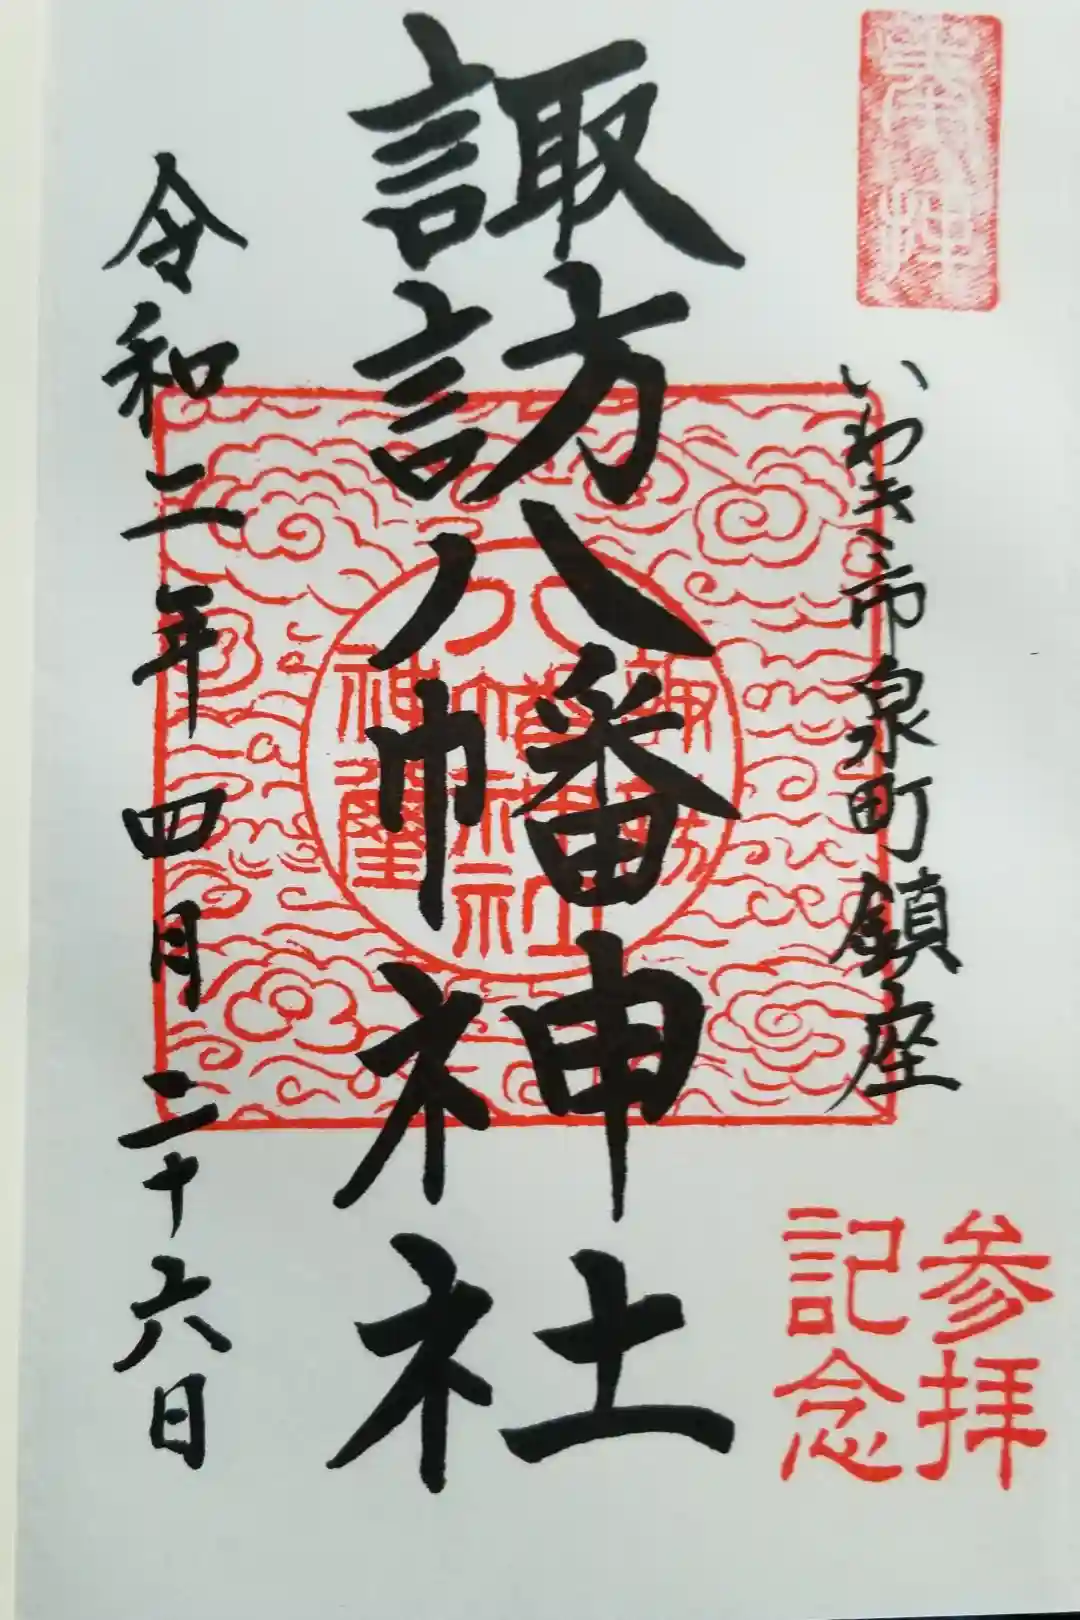 奉拝
いわき市泉町鎮座
諏訪八幡神社
諏訪八幡神社
神璽
令和二年四月二十六日
参拝
記念